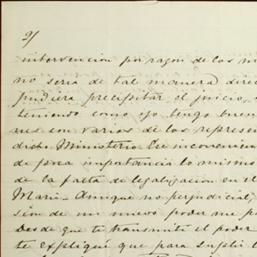 2/
intervención por razon de los m
no seria de tal manera direc
pudiera precipitar el juicio,
teniendo como yo tengo buena
nes con varios de los represen
dicho Ministerio. Ese inconvenien
de poca importancia lo mismo
de la falta de legalizacion en el
Maria. Aunque no perjudicial,
sion de un nuevo poder me p
Desde que te transmití el poder
te expliqué que para suplir l